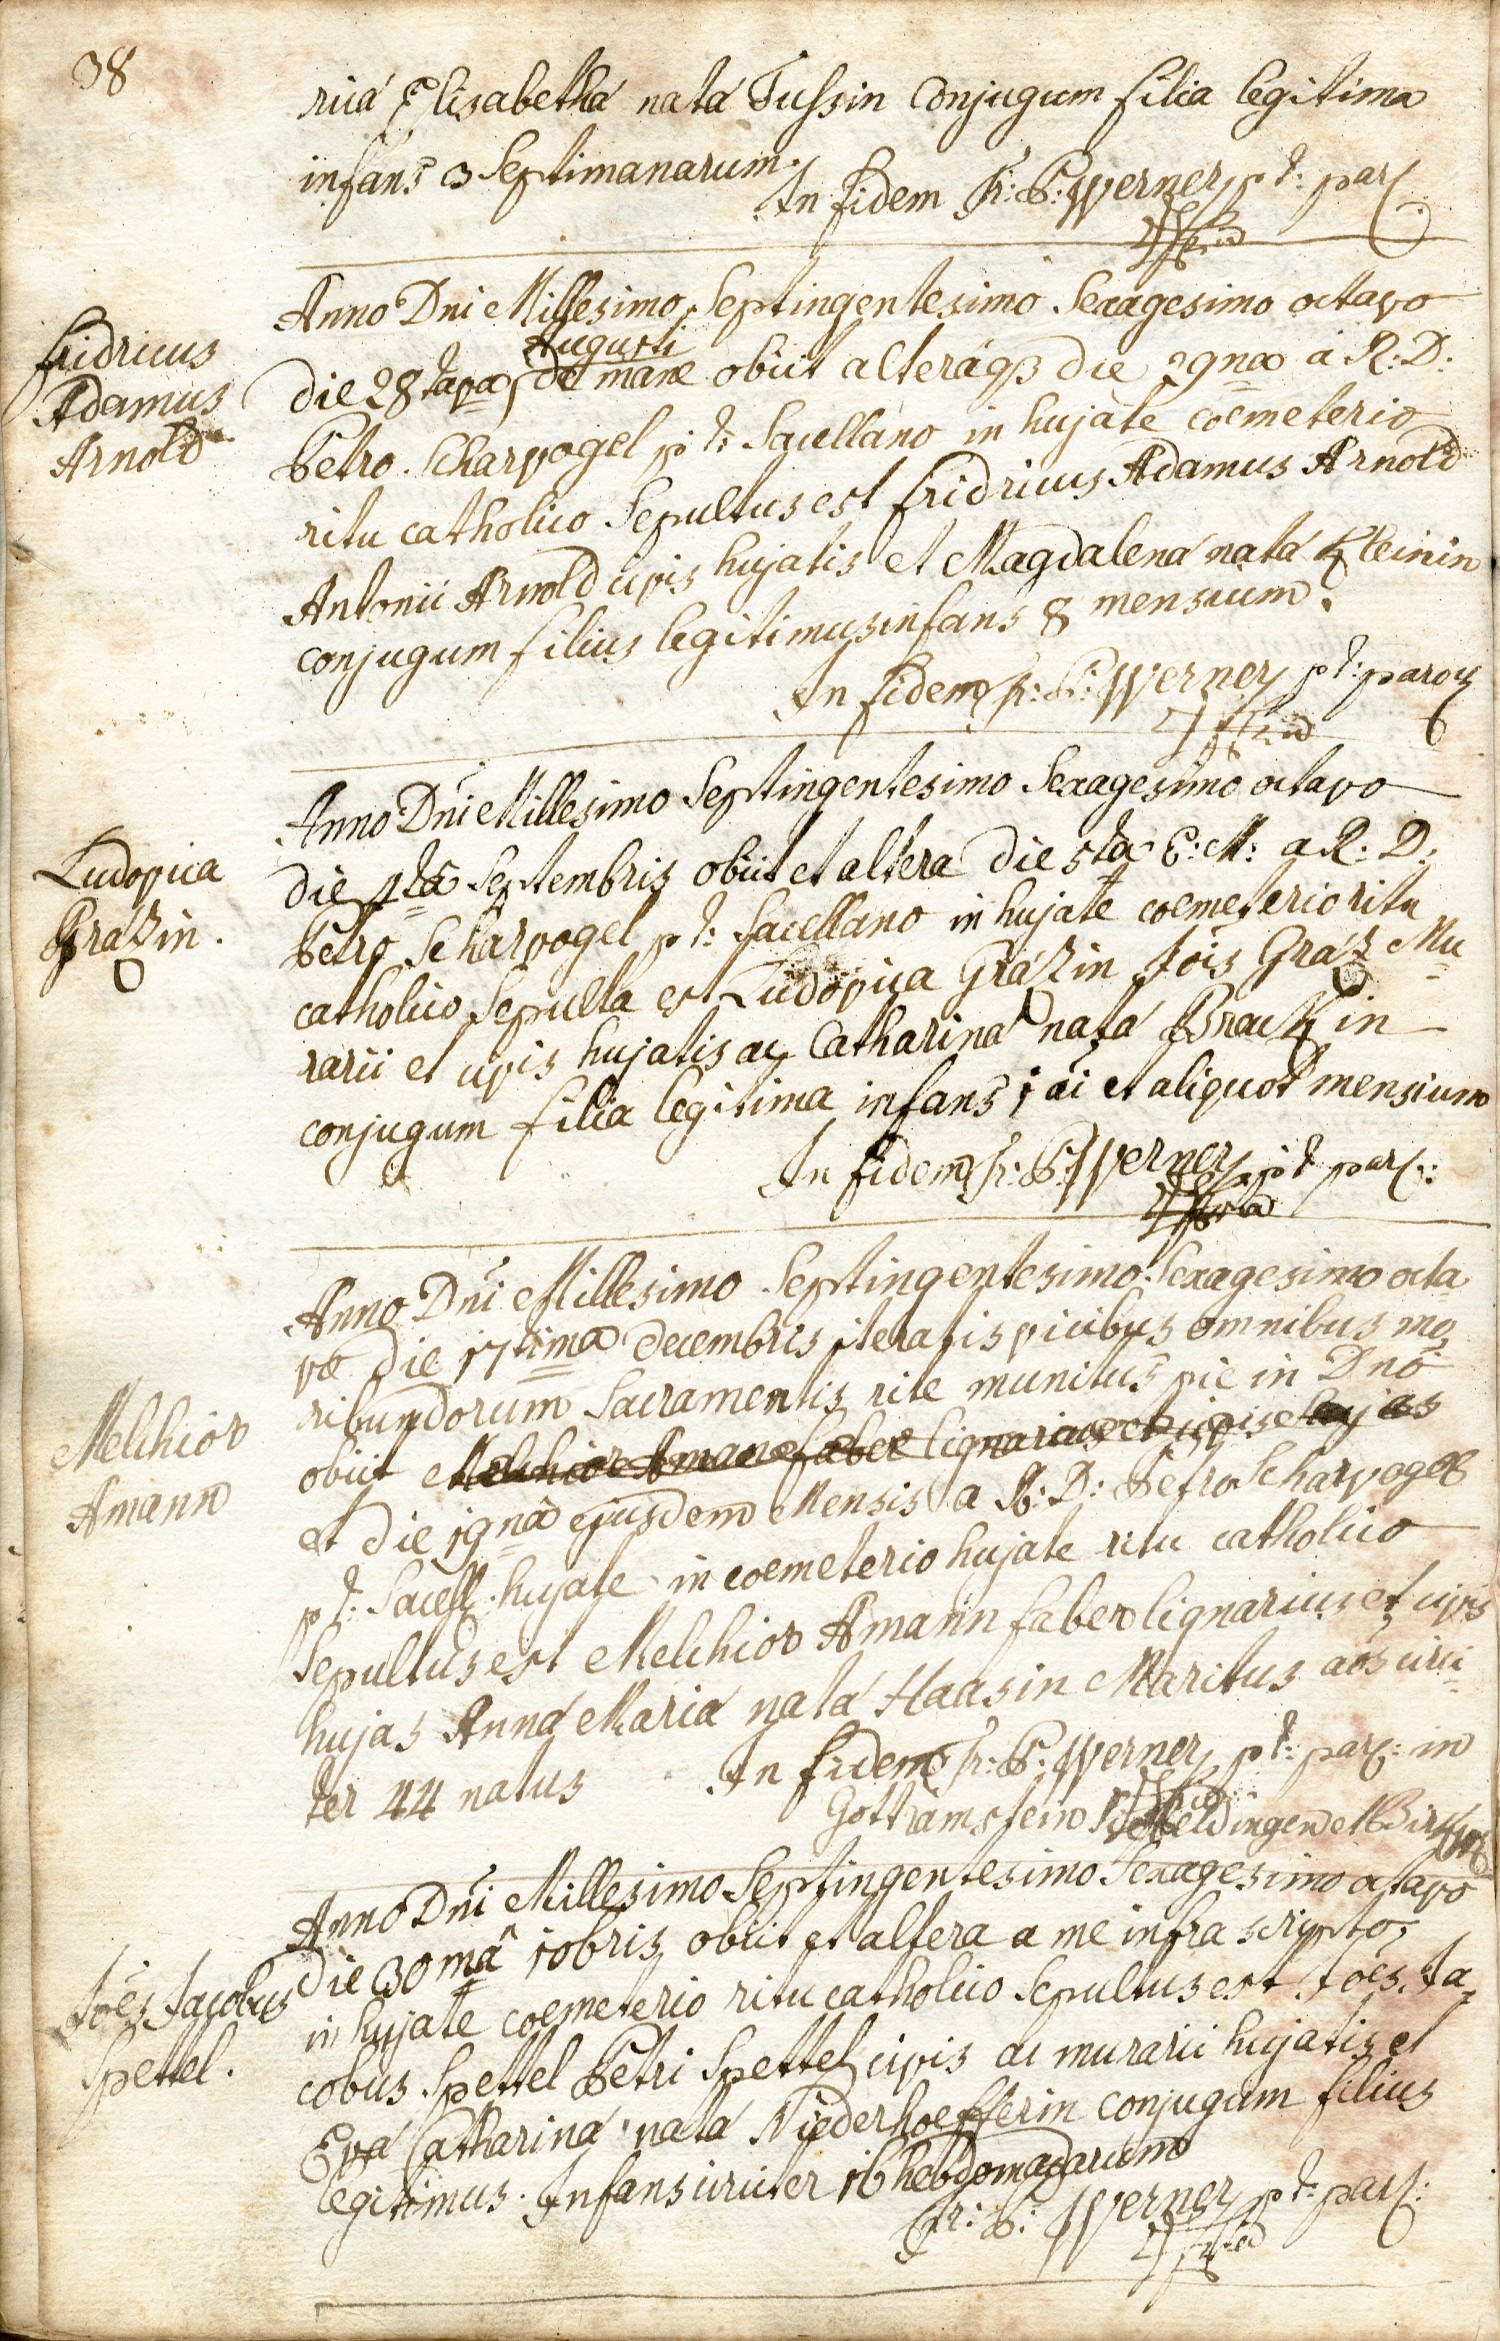 38
riâ Elisabethâ natâ Tussin conjugum filia legitima
infans 3 Septimanarum.
In fidem Fr: P: Werner p t: par:
Anno Dni Millesimo Septingentesimo Sexagesimo octavo
Augusti
die 28 tava de mane obiit alterâq3 die 29na a R: D:
Petro Scharvogel p t: Sacellano in hujate coemeterio
ritu catholico Sepultus est Fridricus Adamus Arnold
Antonii Arnold civis hujatis et Magdalenâ natâ Kleinin
conjugum filius legitimus infans 8 mensium.
In fidem Fr: P: Werner p t: paroch
Fridricus
Adamus
Arnold
Anno Dni Millesimo Septingentesimo Sexagesimo octavo
die 4ta Septembris obiit et altera die 5ta E: M: a R: D:
Petro Scharvogel p t: Sacellano in hujate coemeterio ritu
catholico Sepulta est Ludovica Grâzin Jois Grâz Mu
rarii et civis hujatis ac Catharinâ natâ Brackin
conjugum filia legitima infans 1 ai et aliquot mensium
In fidem Fr: P: Werner p t par:
Ludovica
Grazin.
Anno Dni Millesimo Septingentesimo Sexagesimo octa
vo die 17tima decembris iteratis vicibus omnibus mo
ribundorum Sacramentis rite munitus pie in Dno
obiit Melchior Amann faber lignarius et civis hujas
et die 19nâ ejusdem Mensis a R: D: Petro Scharvogel
p t: Sacell: hujate in coemeterio hujate ritu catholico
Sepultus est Melchior Amann faber lignarius et civis
hujas Annâ Mariâ natâ Haasin Maritus aos circi
ter 44 natus
In fidem Fr: P: Werner p t: par: in
Gottramstein
Melchior
Amann
Anno Dni Millesimo Septingentesimo Sexagesimo octavo
die 30mâ xobris obiit et altera a me infra scripto
in hujate coemeterio ritu catholico Sepultus est Joes Ja
cobus Spettel Petri Spettel civis ac murarii hujatis et
Evâ Catharinâ natâ Niederhoefferin conjugum filius
legitimus. Infans circiter 16 hebdomadarum
Fr: P: Werner p t: par:
Joes Jacobus
Spettel.